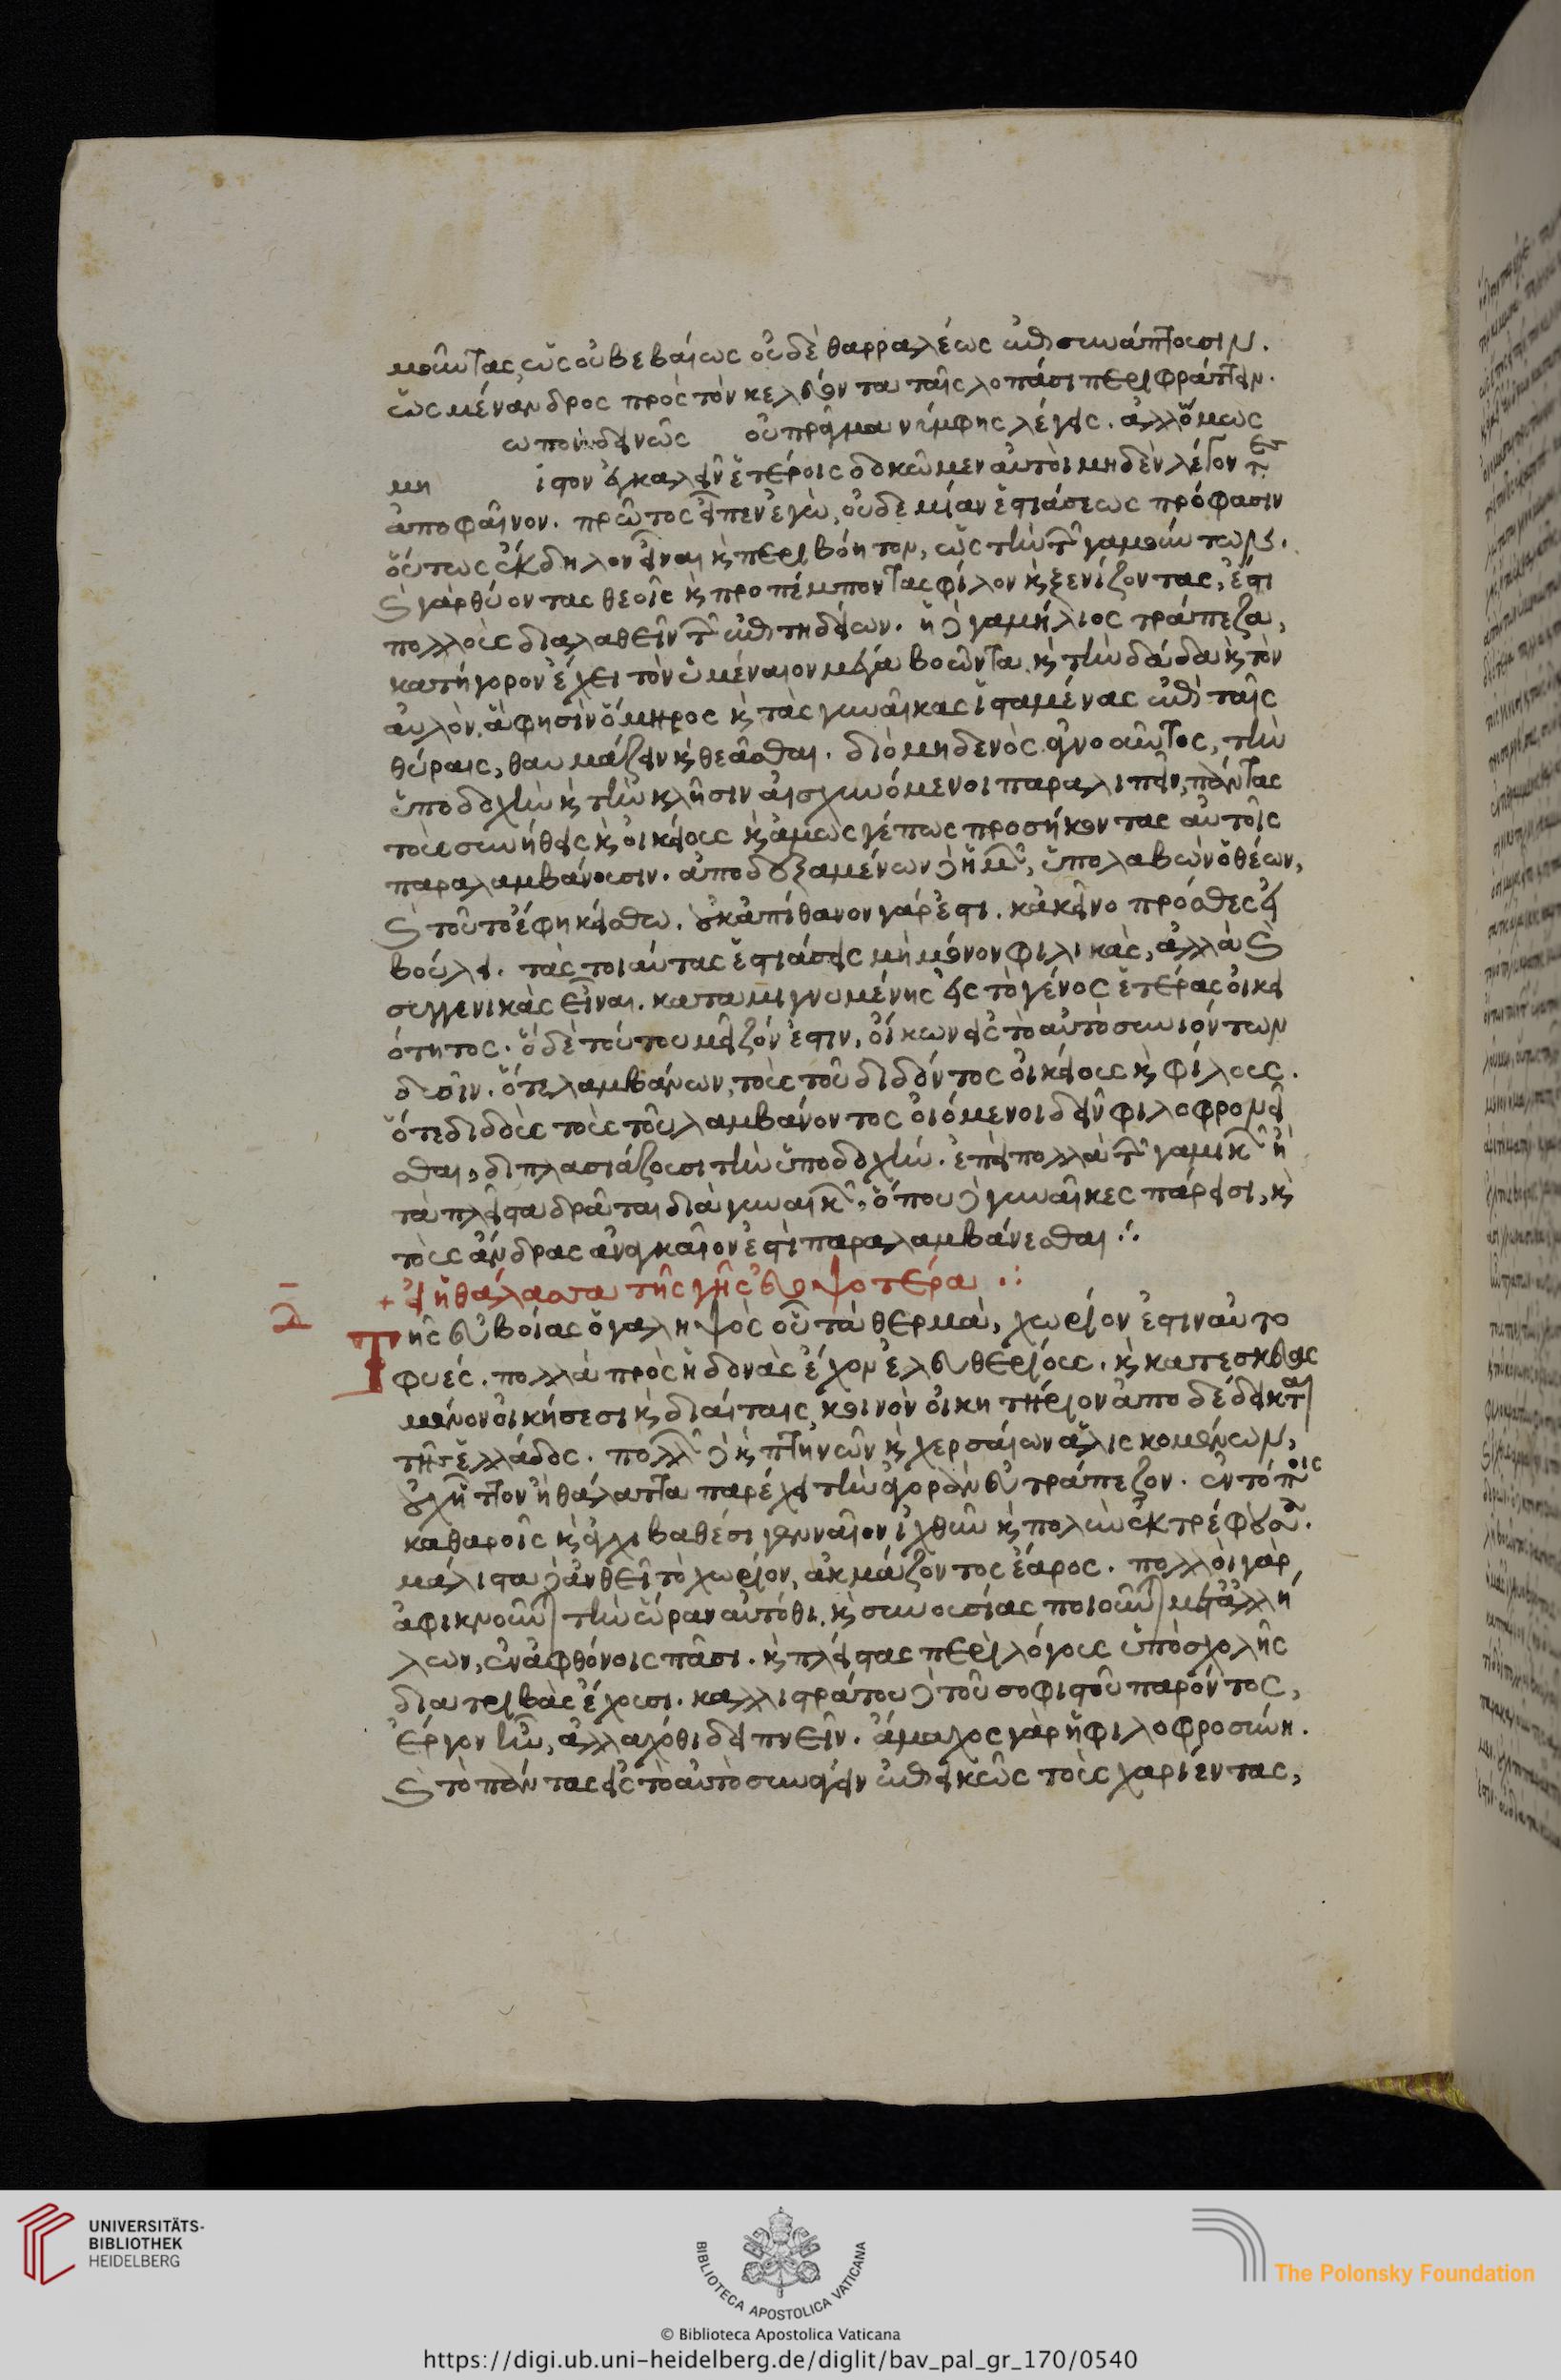 μοῦντας, ὡς οὐ βεβαίως οὐδὲ θαρραλέως ἐπισυνάπτουσιν.
ὡς μένανδρος πρὸς τὸν κελεύοντα ταῖς λοπάσι περιφράττειν.
οὐ πρᾶγμα νύμφης λέγεις. ἀλλ' ὅμως
μη ἐγκαλεῖν ἑτέροις δοκῶμεν αὐτοὶ μηδὲν λέγοντες
ἀποφαῖνον. πρῶτος εἶπεν ἐγὼ, οὐδεμίαν ἑστιάσεως πρόφασιν
οὕτως ἔκδηλον εἶναι καὶ περιβόητον, ὡς τὴν τῶν γαμούντων.
καὶ γὰρ θύοντας θεοῖς καὶ προπέμποντας φίλον καὶ ξενίζοντας, ἔστι
πολλοὺς διαλαθεῖν τῶν ἐπιτηδείων. ἡ δὲ γαμήλιος τράπεζα,
κατήγορον ἔχει τὸν ὑμέναιον μέγα βοῶντα καὶ τὴν δᾷδα καὶ τὸν
αὐλὸν, ἅ φησὶν ὅμηρος καὶ τὰς γυναῖκας ἱσταμένας ἐπὶ ταῖς
θύραις, θαυμάζειν καὶ θεᾶσθαι. διὸ μηδενὸς ἀγνοοῦντος, τὴν
ὑποδοχὴν καὶ τὴν κλῆσιν αἰσχυνόμενοι παραλιπεῖν, πάντας
τοὺς συνήθεις καὶ οἰκείους καὶ ἁμῶς γέ πως προσήκοντας αὐτοῖς
παραλαμβάνουσιν. ἀποδεξαμένων δὲ ἡμῶν, ὑπολαβὼν ὁ θέων,
καὶ τοῦτο ἔφη κείσθω. οὐκ ἀπίθανον γάρ ἐστι. κἀκεῖνο πρόσθες εἰ
βούλει. τὰς τοιαύτας ἑστιάσεις μὴ μόνον φιλικὰς, ἀλλὰ καὶ
συγγενικὰς εἶναι. καταμιγνυμένης εἰς τὸ γένος ἑτέρας οἰκει
ότητος. ὃ δὲ τούτου μεῖζόν ἐστιν, οἴκων εἰς τὸ αὐτὸ συνιόντων
δυοῖν. ὅ τε λαμβάνων, τοὺς τοῦ διδόντος οἰκείους καὶ φίλους.
ὅ τε διδοὺς τοὺς τοῦ λαμβάνοντος οἰόμενοι δεῖν φιλοφρονεῖ
σθαι, διπλασιάζουσι τὴν ὑποδοχήν. ἐπεὶ πολλὰ τῶν γαμικῶν ἢ
τὰ πλεῖστα δρᾶται διὰ γυναικῶν, ὅπου δὲ γυναῖκες πάρεισι, καὶ
τοὺς ἄνδρας ἀναγκαῖον ἐστὶ παραλαμβάνεσθαι ∴
+ εἰ ἡ θάλασσα τῆς γῆς εὐοψοτέρα ∴
Τῆς εὐβοίας ὁ γαληψὸς οὗ τὰ θερμὰ, χωρίον ἐστὶν αὐτο
φυές. πολλὰ πρὸς ἡδονὰς ἔχον ἐλευθερίους. καὶ κατεσκευας
μένον οἰκήσεσι καὶ διαίταις, κοινὸν οἰκητήριον ἀποδέδεικται
τῆς ἑλλάδος. πολλῶν δὲ καὶ πτηνῶν καὶ χερσαίων ἁλισκομένων,
οὐχ ἧττον ἡ θάλαττα παρέχει τὴν ἀγορὰν εὐτράπεζον. ἐν τόποις
καθαροῖς καὶ ἀγχιβαθέσι γενναῖον ἰχθὺν καὶ πολὺν ἐκτρέφουσα.
μάλιστα δὲ ἀνθεῖ τὸ χωρίον, ἀκμάζοντος ἔαρος. πολλοὶ γὰρ
ἀφικνοῦνται τὴν ὥραν αὐτόθι. καὶ συνουσίας ποιοῦνται μετ' ἀλλή
λων, ἐν ἀφθόνοις πᾶσι. καὶ πλείστας περὶ λόγους ὑπὸ σχολῆς
διατριβὰς ἔχουσι. καλλιστράτου δὲ τοῦ σοφιστοῦ παρόντος,
ἔργον ἦν, ἀλλαχόθι δειπνεῖν. ἄμαχος γὰρ ἡ φιλοφροσύνη.
καὶ τὸ πάντας εἰς τὸ αὐτὸ συνάγειν ἐπιεικῶς τοὺς χαρίεντας,
UNIVERSITÄTS-
BIBLIOTHEK
HEIDELBERG
BIBLIOTECA APOSTOLICA VATICANA
The Polonsky Foundation
© Biblioteca Apostolica Vaticana
https://digi.ub.uni-heidelberg.de/diglit/bav_pal_gr_170/0540